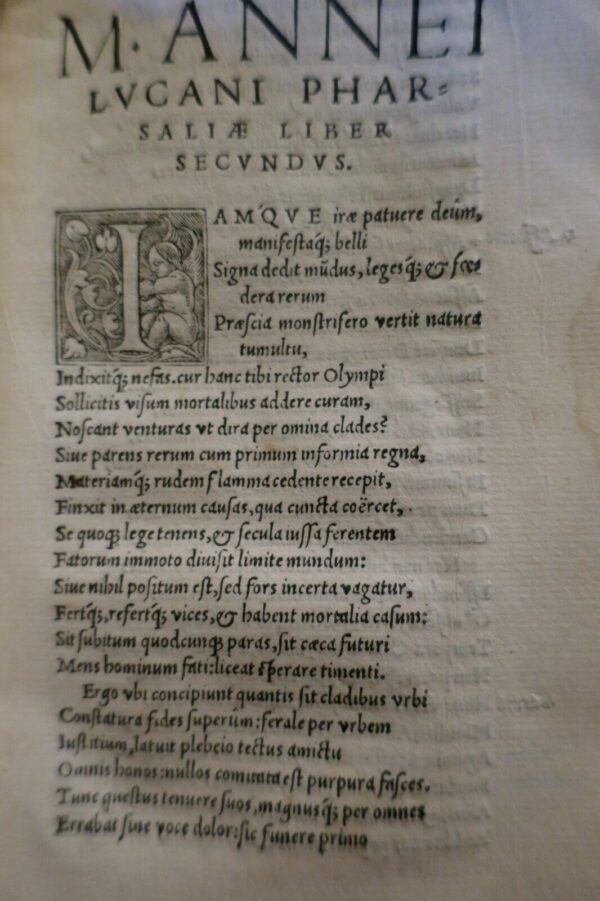 M. ANNEI
LVCANI PHAR=
SALIÆ LIBER
SECVNDVS.
IAMQ́VE iræ patuere deûm,
manifestaq́; belli
Signa dedit mũdus, legesq́; & fœ
dera rerum
Præscia monstrifero vertit natura
tumultu,
Indixitq́; nefas. cur hanc tibi rector Olympi
Sollicitis visum mortalibus addere curam,
Noscant venturas vt dira per omina clades?
Siue parens rerum cum primum informia regna,
Materiamq́; rudem flamma cedente recepit,
Finxit in æternum causas, qua cuncta coërcet,
Se quoq; lege tenens, & secula iussa ferentem
Fatorum immoto diuisit limite mundum:
Siue nihil positum est, sed fors incerta vagatur,
Fertq́;, refertq́; vices, & habent mortalia casum:
Sit subitum quodcunq; paras, sit cæca futuri
Mens hominum fati: liceat sperare timenti.
Ergo vbi concipiunt quantis sit cladibus vrbi
Constatura fides superûm: ferale per vrbem
Iustitium, latuit plebeio tectus amictu
Omnis honos: nullos comitata est purpura fasces.
Tunc questus tenuere suos, magnusq́; per omnes
Errabat sine voce dolor: sic funere primo